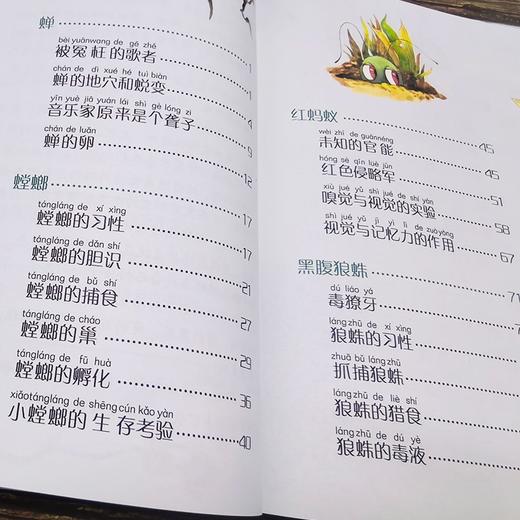 蝉
bèi yuānwang de gē zhě
被冤枉的歌者 1
chán de dì xué hé tuì biàn
蝉的地穴和蜕变 4
yīn yuè jiā yuán lái shì gè lóng zi
音乐家原来是个聋子 9
chán de luǎn
蝉的卵 12
螳螂 17
tángláng de xí xìng
螳螂的习性 17
tángláng de dǎn shí
螳螂的胆识 21
tángláng de bǔ shí
螳螂的捕食 27
tángláng de cháo
螳螂的巢 29
tángláng de fū huà
螳螂的孵化 36
xiǎotángláng de shēng cún kǎo yàn
小螳螂的生存考验 40
红蚂蚁 45
wèi zhī de guānnéng
未知的官能 45
hóng sè qīn lüè jūn
红色侵略军 51
xiù jué yǔ shì jué de shí yàn
嗅觉与视觉的实验 58
shì jué yǔ jì yì lì de zuòyòng
视觉与记忆力的作用 67
黑腹狼蛛 71
dú liáo yá
毒獠牙
láng zhū de xí xìng
狼蛛的习性
zhuā bǔ láng zhū
抓捕狼蛛
láng zhū de liè shí
狼蛛的猎食
láng zhū de dú yè
狼蛛的毒液